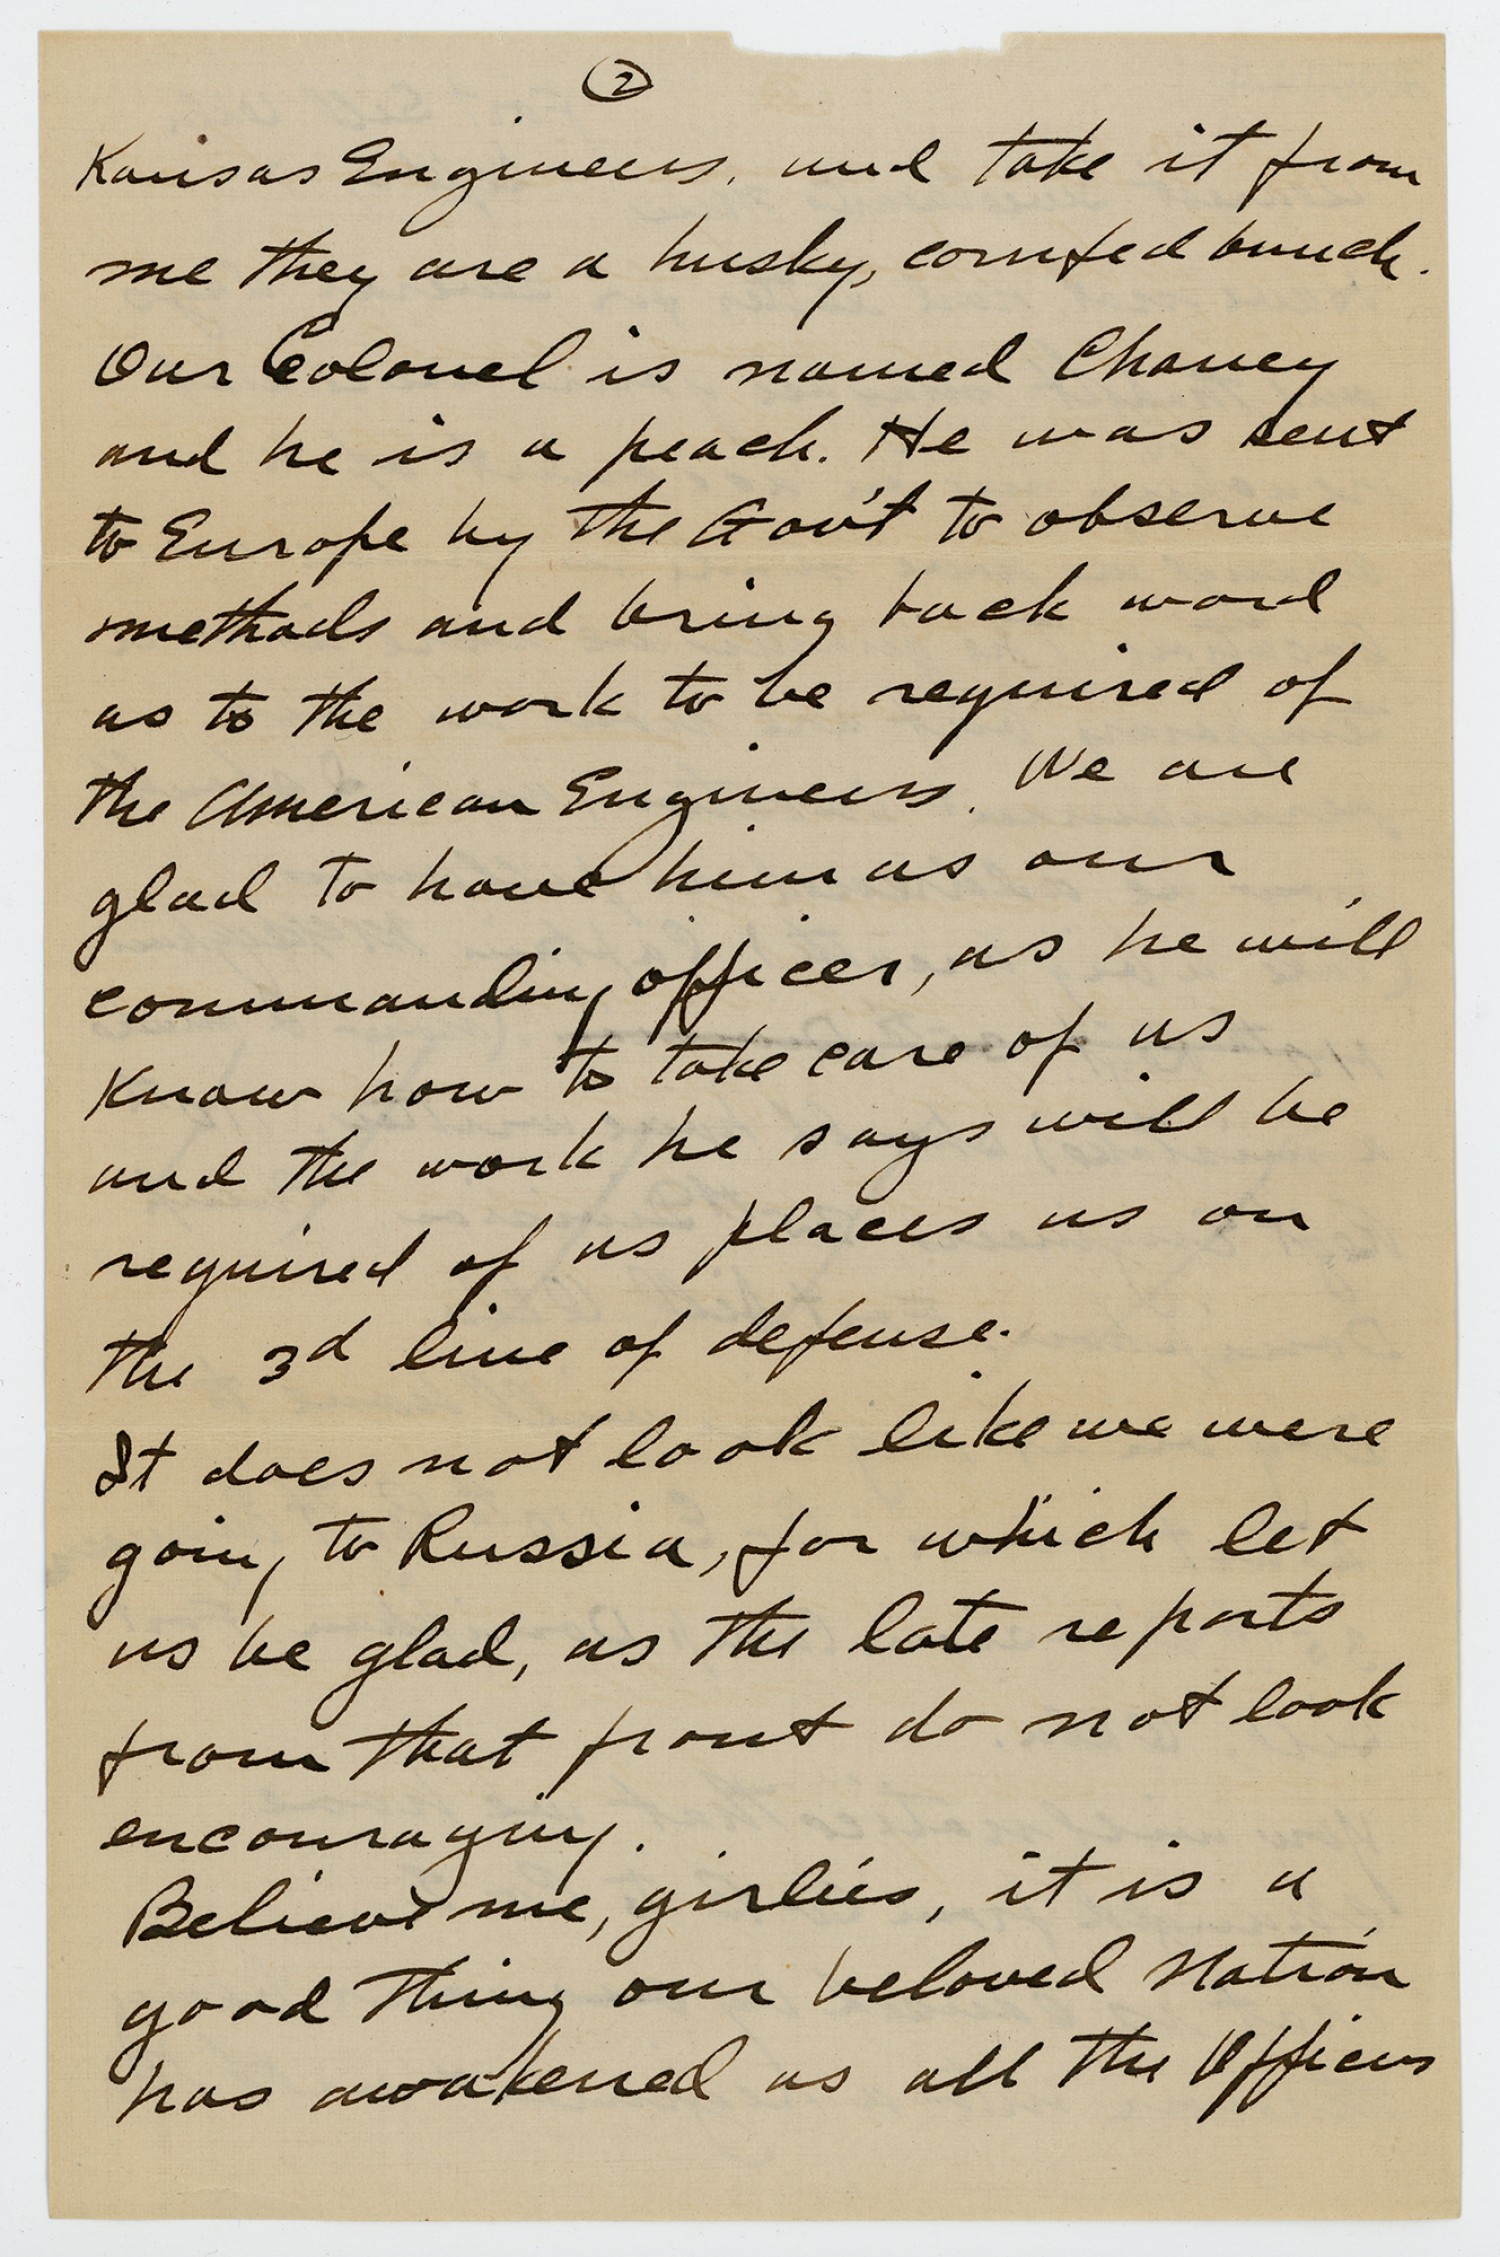 2
Kansas Engineers, and take it from
me they are a husky, cornfed bunch.
Our Colonel is named Chaney
and he is a peach. He was sent
to Europe by the Gov't to observe
methods and bring back word
as to the work to be required of
the American Engineers. We are
glad to have him as our
commanding officer, as he will
Know how to take care of us
and the work he says will be
required of us places us on
the 3d line of defense.
It does not look like we were
going to Russia, for which let
us be glad, as the late reports
from that front do not look
encouraging.
Believe me, girlies, it is a
good thing our beloved Nation
has awakened as all the Officers